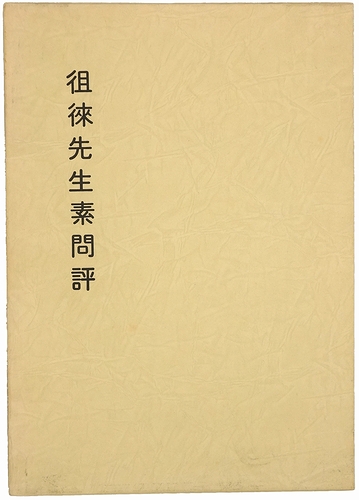 徂徠先生素問評